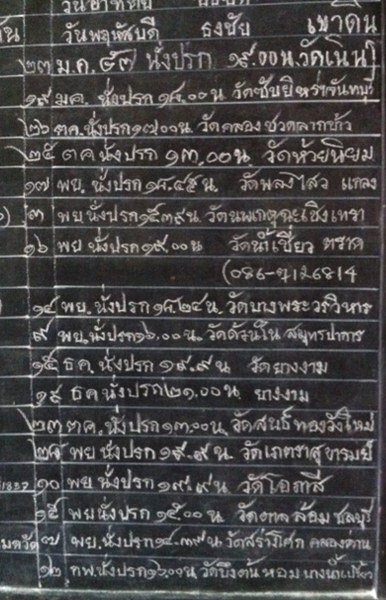 วันพฤหัสบดี ธงชัย เขาดิน
๒๓ ม.ค. ๕๗ นั่งปรก ๑๙.๐๐ น. วัดเนินไ
๑๙ มค. นั่งปรก ๑๘.๐๐ น วัดซับยิหร่าจันทบุรี
๒๖ ตค. นั่งปรก ๑๗๐๐ น. วัดคลองชวดลากข้าว
๒๕ ตค นั่งปรก ๑๓.๐๐ น. วัดห้วยนิยม
๑๗ พย. นั่งปรก ๑๘.๔๕ น. วัดพลงไสว แกลง
๓ พย. นั่งปรก ๑๕๓๙ น. ฉะเชิงเทรา
๑๖ พย นั่งปรก ๑๙๐๐ น วัดน้ำเชี่ยว ตราด
(086-
๑๔ พย. นั่งปรก ๑๘.๒๔ น. วัดบางพระวรวิหาร
๙ พย. นั่งปรก ๑๖.๐๐ น. วัดด่านใน สมุทรปาการ
๑๕ ธค. นั่งปรก ๑๙.๙ น วัดยางงาม
๑๙ ธค นั่งปรก ๒๑.๐๐ น ยางงาม
๒๓ ตค. นั่งปรก ๑๓.๐๐ น. วัดสนธ์ทองวังใหม่
๒๔ พย นั่งปรก ๑๙.๙ น. วัดเกตราสุการมย์
๑๐ พย. นั่งปรก ๑๙.๙ น. วัดโอภาสี
๑๕ พย นั่งปรก ๑๕๐๐ น. วัดตาลล้อม ชลบุรี
มควัด ๗ พย. นั่งปรก ๑๔-๓๙ น วัดสร้างโศก คลองด่าน
๑๒ กพ. นั่งปรก ๑๖๐๐ น วัดบึงต้นหอม บางน้ำเปรี้ยว